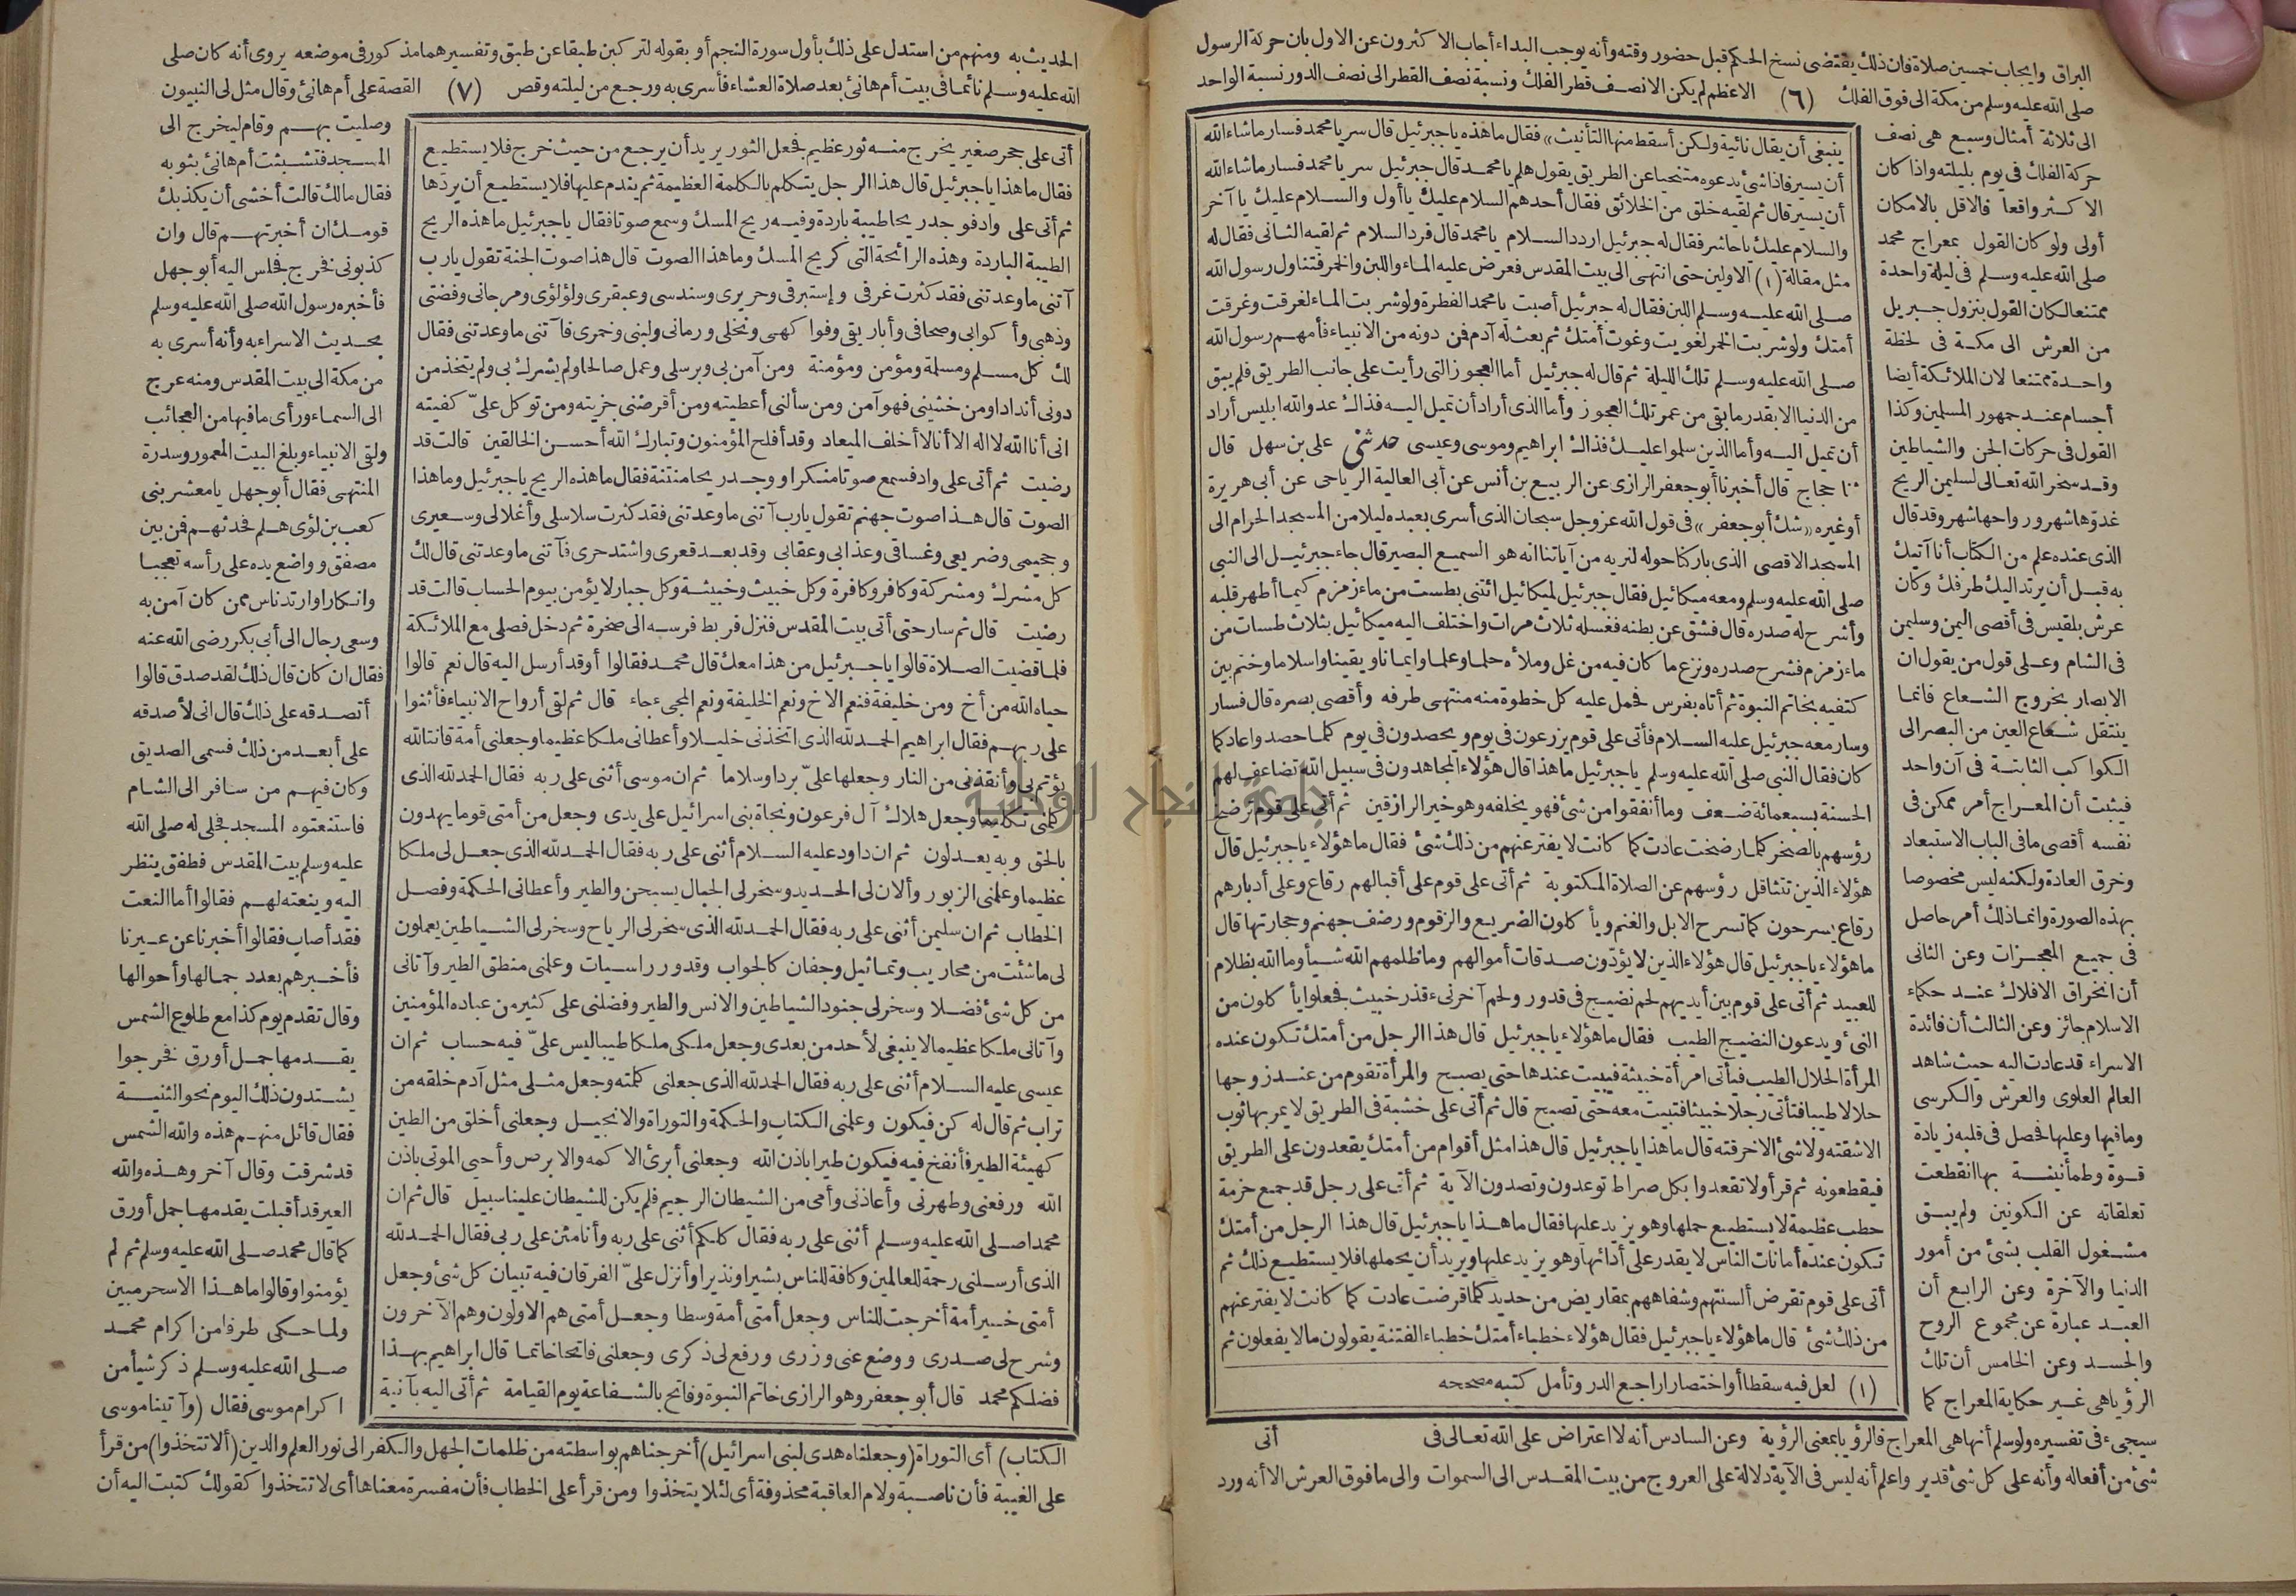 البراق وايجاب خمسين صلاة فان ذلك يقتضى نسخ الحكم قبل حضور وقته وأنه يوجب البداء أجاب الاكثرون عن الاول بان حركة الرسول
صلى الله عليه وسلم من مكة الى فوق الفلك (٦) الاعظم لم يكن الا نصف قطر الفلك ونسبة نصف القطر الى نصف الدور نسبة الواحد
الى ثلاثة أمثال وسبع هى نصف
حركة الفلك فى يوم بليلته واذا كان
الاكثر واقعا فالاقل بالامكان
أولى ولو كان القول بمعراج محمد
صلى الله عليه وسلم فى ليلة واحدة
ممتنعا لكان القول بنزول جبريل
من العرش الى مكة فى لحظة
واحدة ممتنعا لان الملائكة أيضا
أجسام عند جمهور المسلمين وكذا
القول فى حركات الجن والشياطين
وقد سخر الله تعالى لسليمن الريح
غدوّها شهر ورواحها شهر وقد قال
الذى عنده علم من الكتاب أنا آتيك
به قبل أن يرتد اليك طرفك وكان
عرش بلقيس فى أقصى اليمن وسليمن
فى الشام وعلى قول من يقول ان
الابصار بخروج الشعاع فانما
ينتقل شعاع العين من البصر الى
الكواكب الثابتة فى آن واحد
فيثبت أن المعراج أمر ممكن فى
نفسه أقصى ما فى الباب الاستبعاد
وخرق العادة ولكنه ليس مخصوصا
بهذه الصورة وانما ذلك أمر حاصل
فى جميع المعجزات وعن الثانى
أن انخراق الافلاك عند حكماء
الاسلام جائز وعن الثالث أن فائدة
الاسراء قد عادت اليه حيث شاهد
العالم العلوى والعرش والكرسى
وما فيها وعليها فحصل فى قلبه زيادة
قوة وطمأنينة بها انقطعت
تعلقاته عن الكونين ولم يبق
مشغول القلب بشئ من أمور
الدنيا والآخرة وعن الرابع أن
العبد عبارة عن مجموع الروح
والجسد وعن الخامس أن تلك
الرؤيا هى غير حكاية المعراج كما
ينبغى أن يقال نائية ولكن أسقط منها التأنيث» فقال ما هذه يا جبرئيل قال سر يا محمد فسار ما شاء الله
أن يسير فاذا شئ يدعوه متنحيا عن الطريق يقول هلم يا محمد قال جبرئيل سر يا محمد فسار ما شاء الله
أن يسير قال ثم لقيه خلق من الخلائق فقال أحدهم السلام عليك يا أول والسلام عليك يا آخر
والسلام عليك يا حاشر فقال له جبرئيل اردد السلام يا محمد قال فرد السلام ثم لقيه الثانى فقال له
مثل مقالة (١) الاولين حتى انتهى الى بيت المقدس فعرض عليه الماء واللبن والخمر فتناول رسول الله
صلى الله عليه وسلم اللبن فقال له جبرئيل أصبت يا محمد الفطرة ولو شربت الماء لغرقت وغرقت
أمتك ولو شربت الخمر لغويت وغوت أمتك ثم بعث له آدم فمن دونه من الانبياء فأمهم رسول الله
صلى الله عليه وسلم تلك الليلة ثم قال له جبرئيل أما العجوز التى رأيت على جانب الطريق فلم يبق
من الدنيا الا بقدر ما بقى من عمر تلك العجوز وأما الذى أراد أن تميل اليه فذاك عدو الله ابليس أراد
أن تميل اليه وأما الذين سلموا عليك فذاك ابراهيم وموسى وعيسى حدثنى على بن سهل قال
ثنا حجاج قال أخبرنا أبو جعفر الرازى عن الربيع بن أنس عن أبى العالية الرياحى عن أبى هريرة
أو غيره «شك أبو جعفر» فى قول الله عز وجل سبحان الذى أسرى بعبده ليلا من المسجد الحرام الى
المسجد الاقصى الذى باركنا حوله لنريه من آياتنا انه هو السميع البصير قال جاء جبرئيل الى النبى
صلى الله عليه وسلم ومعه ميكائيل فقال جبرئيل لميكائيل ائتنى بطست من ماء زمزم كيما أطهر قلبه
وأشرح له صدره قال فشق عن بطنه فغسله ثلاث مرات واختلف اليه ميكائيل بثلاث طسات من
ماء زمزم فشرح صدره ونزع ما كان فيه من غل وملأه حلما وعلما وايمانا ويقينا واسلاما وختم بين
كتفيه بخاتم النبوة ثم أتاه بفرس فحمل عليه كل خطوة منه منتهى طرفه وأقصى بصره قال فسار
وسار معه جبرئيل عليه السلام فأتى على قوم يزرعون فى يوم ويحصدون فى يوم كلما حصدوا عاد كما
كان فقال النبى صلى الله عليه وسلم يا جبرئيل ما هذا قال هؤلاء المجاهدون فى سبيل الله تضاعف لهم
الحسنة بسبعمائة ضعف وما أنفقوا من شئ فهو يخلفه وهو خير الرازقين ثم أتى على قوم ترضخ
رؤسهم بالصخر كلما رضخت عادت كما كانت لا يفتر عنهم من ذلك شئ فقال ما هؤلاء يا جبرئيل قال
هؤلاء الذين تتثاقل رؤسهم عن الصلاة المكتوبة ثم أتى على قوم على أقبالهم رقاع وعلى أدبارهم
رقاع يسرحون كما تسرح الابل والغنم ويأكلون الضريع والزقوم ورضف جهنم وحجارتها قال
ما هؤلاء يا جبرئيل قال هؤلاء الذين لا يؤدّون صدقات أموالهم وما ظلمهم الله شيأ وما الله بظلام
للعبيد ثم أتى على قوم بين أيديهم لحم نضيج فى قدور ولحم آخر نىء قذر خبيث فجعلوا يأكلون من
النىء ويدعون النضيج الطيب فقال ما هؤلاء يا جبرئيل قال هذا الرجل من أمتك تكون عنده
المرأة الحلال الطيب فيأتى امرأة خبيثة فيبيت عندها حتى يصبح والمرأة تقوم من عند زوجها
حلالا طيبا فتأتى رجلا خبيثا فتبيت معه حتى تصبح قال ثم أتى على خشبة فى الطريق لا يمر بها ثوب
الا شقته ولا شئ الا خرقته قال ما هذا يا جبرئيل قال هذا مثل أقوام من أمتك يقعدون على الطريق
فيقطعونه ثم قرأ ولا تقعدوا بكل صراط توعدون وتصدون الآية ثم أتى على رجل قد جمع حزمة
حطب عظيمة لا يستطيع حملها وهو يزيد عليها فقال ما هذا يا جبرئيل قال هذا الرجل من أمتك
تكون عنده أمانات الناس لا يقدر على أدائها وهو يزيد عليها ويريد أن يحملها فلا يستطيع ذلك ثم
أتى على قوم تقرض ألسنتهم وشفاههم بمقاريض من حديد كلما قرضت عادت كما كانت لا يفتر عنهم
من ذلك شئ قال ما هؤلاء يا جبرئيل فقال هؤلاء خطباء أمتك خطباء الفتنة يقولون ما لا يفعلون ثم
(١) لعل فيه سقطا أو اختصارا راجع الدر وتأمل كتبه مصححه
سيجىء فى تفسيره ولو سلم أنها هى المعراج فالرؤيا بمعنى الرؤية وعن السادس أنه لا اعتراض على الله تعالى فى أتى
شئ من أفعاله وأنه على كل شئ قدير واعلم أنه ليس فى الآية دلالة على العروج من بيت المقدس الى السموات والى ما فوق العرش الا أنه ورد
الحديث به ومنهم من استدل على ذلك بأول سورة النجم أو بقوله لتركبن طبقا عن طبق وتفسيرهما مذكور فى موضعه يروى أنه كان صلى
الله عليه وسلم نائما فى بيت أم هانئ بعد صلاة العشاء فأسرى به ورجع من ليلته وقص (٧) القصة على أم هانئ وقال مثل لى النبيون
أتى على جحر صغير يخرج منه ثور عظيم فجعل الثور يريد أن يرجع من حيث خرج فلا يستطيع
فقال ما هذا يا جبرئيل قال هذا الرجل يتكلم بالكلمة العظيمة ثم يندم عليها فلا يستطيع أن يردّها
ثم أتى على واد فوجد ريحا طيبة باردة وفيه ريح المسك وسمع صوتا فقال يا جبرئيل ما هذه الريح
الطيبة الباردة وهذه الرائحة التى كريح المسك وما هذا الصوت قال هذا صوت الجنة تقول يا رب
آتنى ما وعدتنى فقد كثرت غرفى وإستبرقى وحريرى وسندسى وعبقرى ولؤلؤى ومرجانى وفضتى
وذهبى وأكوابى وصحافى وأباريقى وفواكهى ونخلى ورمانى ولبنى وخمرى فآتنى ما وعدتنى فقال
لك كل مسلم ومسلمة ومؤمن ومؤمنة ومن آمن بى وبرسلى وعمل صالحا ولم يشرك بى ولم يتخذ من
دونى أندادا ومن خشينى فهو آمن ومن سألنى أعطيته ومن أقرضنى جزيته ومن توكل علىّ كفيته
انى أنا الله لا اله الا أنا لا أخلف الميعاد وقد أفلح المؤمنون وتبارك الله أحسن الخالقين قالت قد
رضيت ثم أتى على واد فسمع صوتا منكرا ووجد ريحا منتنة فقال ما هذه الريح يا جبرئيل وما هذا
الصوت قال هذا صوت جهنم تقول يا رب آتنى ما وعدتنى فقد كثرت سلاسلى وأغلالى وسعيرى
وجحيمى وضريعى وغساقى وعذابى وعقابى وقد بعد قعرى واشتد حرى فآتنى ما وعدتنى قال لك
كل مشرك ومشركة وكافر وكافرة وكل خبيث وخبيثة وكل جبار لا يؤمن بيوم الحساب قالت قد
رضيت قال ثم سار حتى أتى بيت المقدس فنزل فربط فرسه الى صخرة ثم دخل فصلى مع الملائكة
فلما قضيت الصلاة قالوا يا جبرئيل من هذا معك قال محمد فقالوا أوقد أرسل اليه قال نعم قالوا
حياه الله من أخ ومن خليفة فنعم الاخ ونعم الخليفة ونعم المجىء جاء قال ثم لقى أرواح الانبياء فأثنوا
على ربهم فقال ابراهيم الحمد لله الذى اتخذنى خليلا وأعطانى ملكا عظيما وجعلنى أمة قانتا لله
يؤتم بى وأنقذنى من النار وجعلها علىّ بردا وسلاما ثم ان موسى أثنى على ربه فقال الحمد لله الذى
كلمنى تكليما وجعل هلاك آل فرعون ونجاة بنى اسرائيل على يدى وجعل من أمتى قوما يهدون
بالحق وبه يعدلون ثم ان داود عليه السلام أثنى على ربه فقال الحمد لله الذى جعل لى ملكا
عظيما وعلمنى الزبور وألان لى الحديد وسخر لى الجبال يسبحن والطير وأعطانى الحكمة وفصل
الخطاب ثم ان سليمن أثنى على ربه فقال الحمد لله الذى سخر لى الرياح وسخر لى الشياطين يعملون
لى ما شئت من محاريب وتماثيل وجفان كالجواب وقدور راسيات وعلمنى منطق الطير وآتانى
من كل شئ فضلا وسخر لى جنود الشياطين والانس والطير وفضلنى على كثير من عباده المؤمنين
وآتانى ملكا عظيما لا ينبغى لأحد من بعدى وجعل ملكى ملكا طيبا ليس علىّ فيه حساب ثم ان
عيسى عليه السلام أثنى على ربه فقال الحمد لله الذى جعلنى كلمته وجعل مثلى مثل آدم خلقه من
تراب ثم قال له كن فيكون وعلمنى الكتاب والحكمة والتوراة والانجيل وجعلنى أخلق من الطين
كهيئة الطير فأنفخ فيه فيكون طيرا باذن الله وجعلنى أبرئ الاكمه والابرص وأحيى الموتى باذن
الله ورفعنى وطهرنى وأعاذنى وأمى من الشيطان الرجيم فلم يكن للشيطان علينا سبيل قال ثم ان
محمدا صلى الله عليه وسلم أثنى على ربه فقال كلكم أثنى على ربه وأنا مثن على ربى فقال الحمد لله
الذى أرسلنى رحمة للعالمين وكافة للناس بشيرا ونذيرا وأنزل علىّ الفرقان فيه تبيان كل شئ وجعل
أمتى خير أمة أخرجت للناس وجعل أمتى أمة وسطا وجعل أمتى هم الاولون وهم الآخرون
وشرح لى صدرى ووضع عنى وزرى ورفع لى ذكرى وجعلنى فاتحا خاتما قال ابراهيم بهذا
فضلكم محمد قال أبو جعفر وهو الرازى خاتم النبوة وفاتح بالشفاعة يوم القيامة ثم أتى اليه بآنية
وصليت بهم وقام ليخرج الى
المسجد فتشبثت أم هانئ بثوبه
فقال مالك قالت أخشى أن يكذبك
قومك ان أخبرتهم قال وان
كذبونى فخرج فجلس اليه أبو جهل
فأخبره رسول الله صلى الله عليه وسلم
بحديث الاسراء به وأنه أسرى به
من مكة الى بيت المقدس ومنه عرج
الى السماء ورأى ما فيها من العجائب
ولقى الانبياء وبلغ البيت المعمور وسدرة
المنتهى فقال أبو جهل يا معشر بنى
كعب بن لؤى هلم فحدثهم فمن بين
مصفق وواضع يده على رأسه تعجبا
وانكارا وارتد ناس ممن كان آمن به
وسعى رجال الى أبى بكر رضى الله عنه
فقال ان كان قال ذلك لقد صدق قالوا
أتصدقه على ذلك قال انى لأصدقه
على أبعد من ذلك فسمى الصديق
وكان فيهم من سافر الى الشام
فاستنعتوه المسجد فجلى له صلى الله
عليه وسلم بيت المقدس فطفق ينظر
اليه وينعته لهم فقالوا أما النعت
فقد أصاب فقالوا أخبرنا عن عيرنا
فأخبرهم بعدد جمالها وأحوالها
وقال تقدم يوم كذا مع طلوع الشمس
يقدمها جمل أورق فخرجوا
يشتدون ذلك اليوم نحو الثنية
فقال قائل منهم هذه والله الشمس
قد شرقت وقال آخر وهذه والله
العير قد أقبلت يقدمها جمل أورق
كما قال محمد صلى الله عليه وسلم ثم لم
يؤمنوا وقالوا ما هذا الا سحر مبين
ولما حكى طرفا من اكرام محمد
صلى الله عليه وسلم ذكر شيأ من
اكرام موسى فقال (وآتينا موسى
الكتاب) أى التوراة (وجعلناه هدى لبنى اسرائيل) أخرجناهم بواسطته من ظلمات الجهل والكفر الى نور العلم والدين (ألا تتخذوا) من قرأ
على الغيبة فأن ناصبة ولام العاقبة محذوفة أى لئلا يتخذوا ومن قرأ على الخطاب فأن مفسرة معناها أى لا تتخذوا كقولك كتبت اليه أن
جامعة النجاح الوطنية